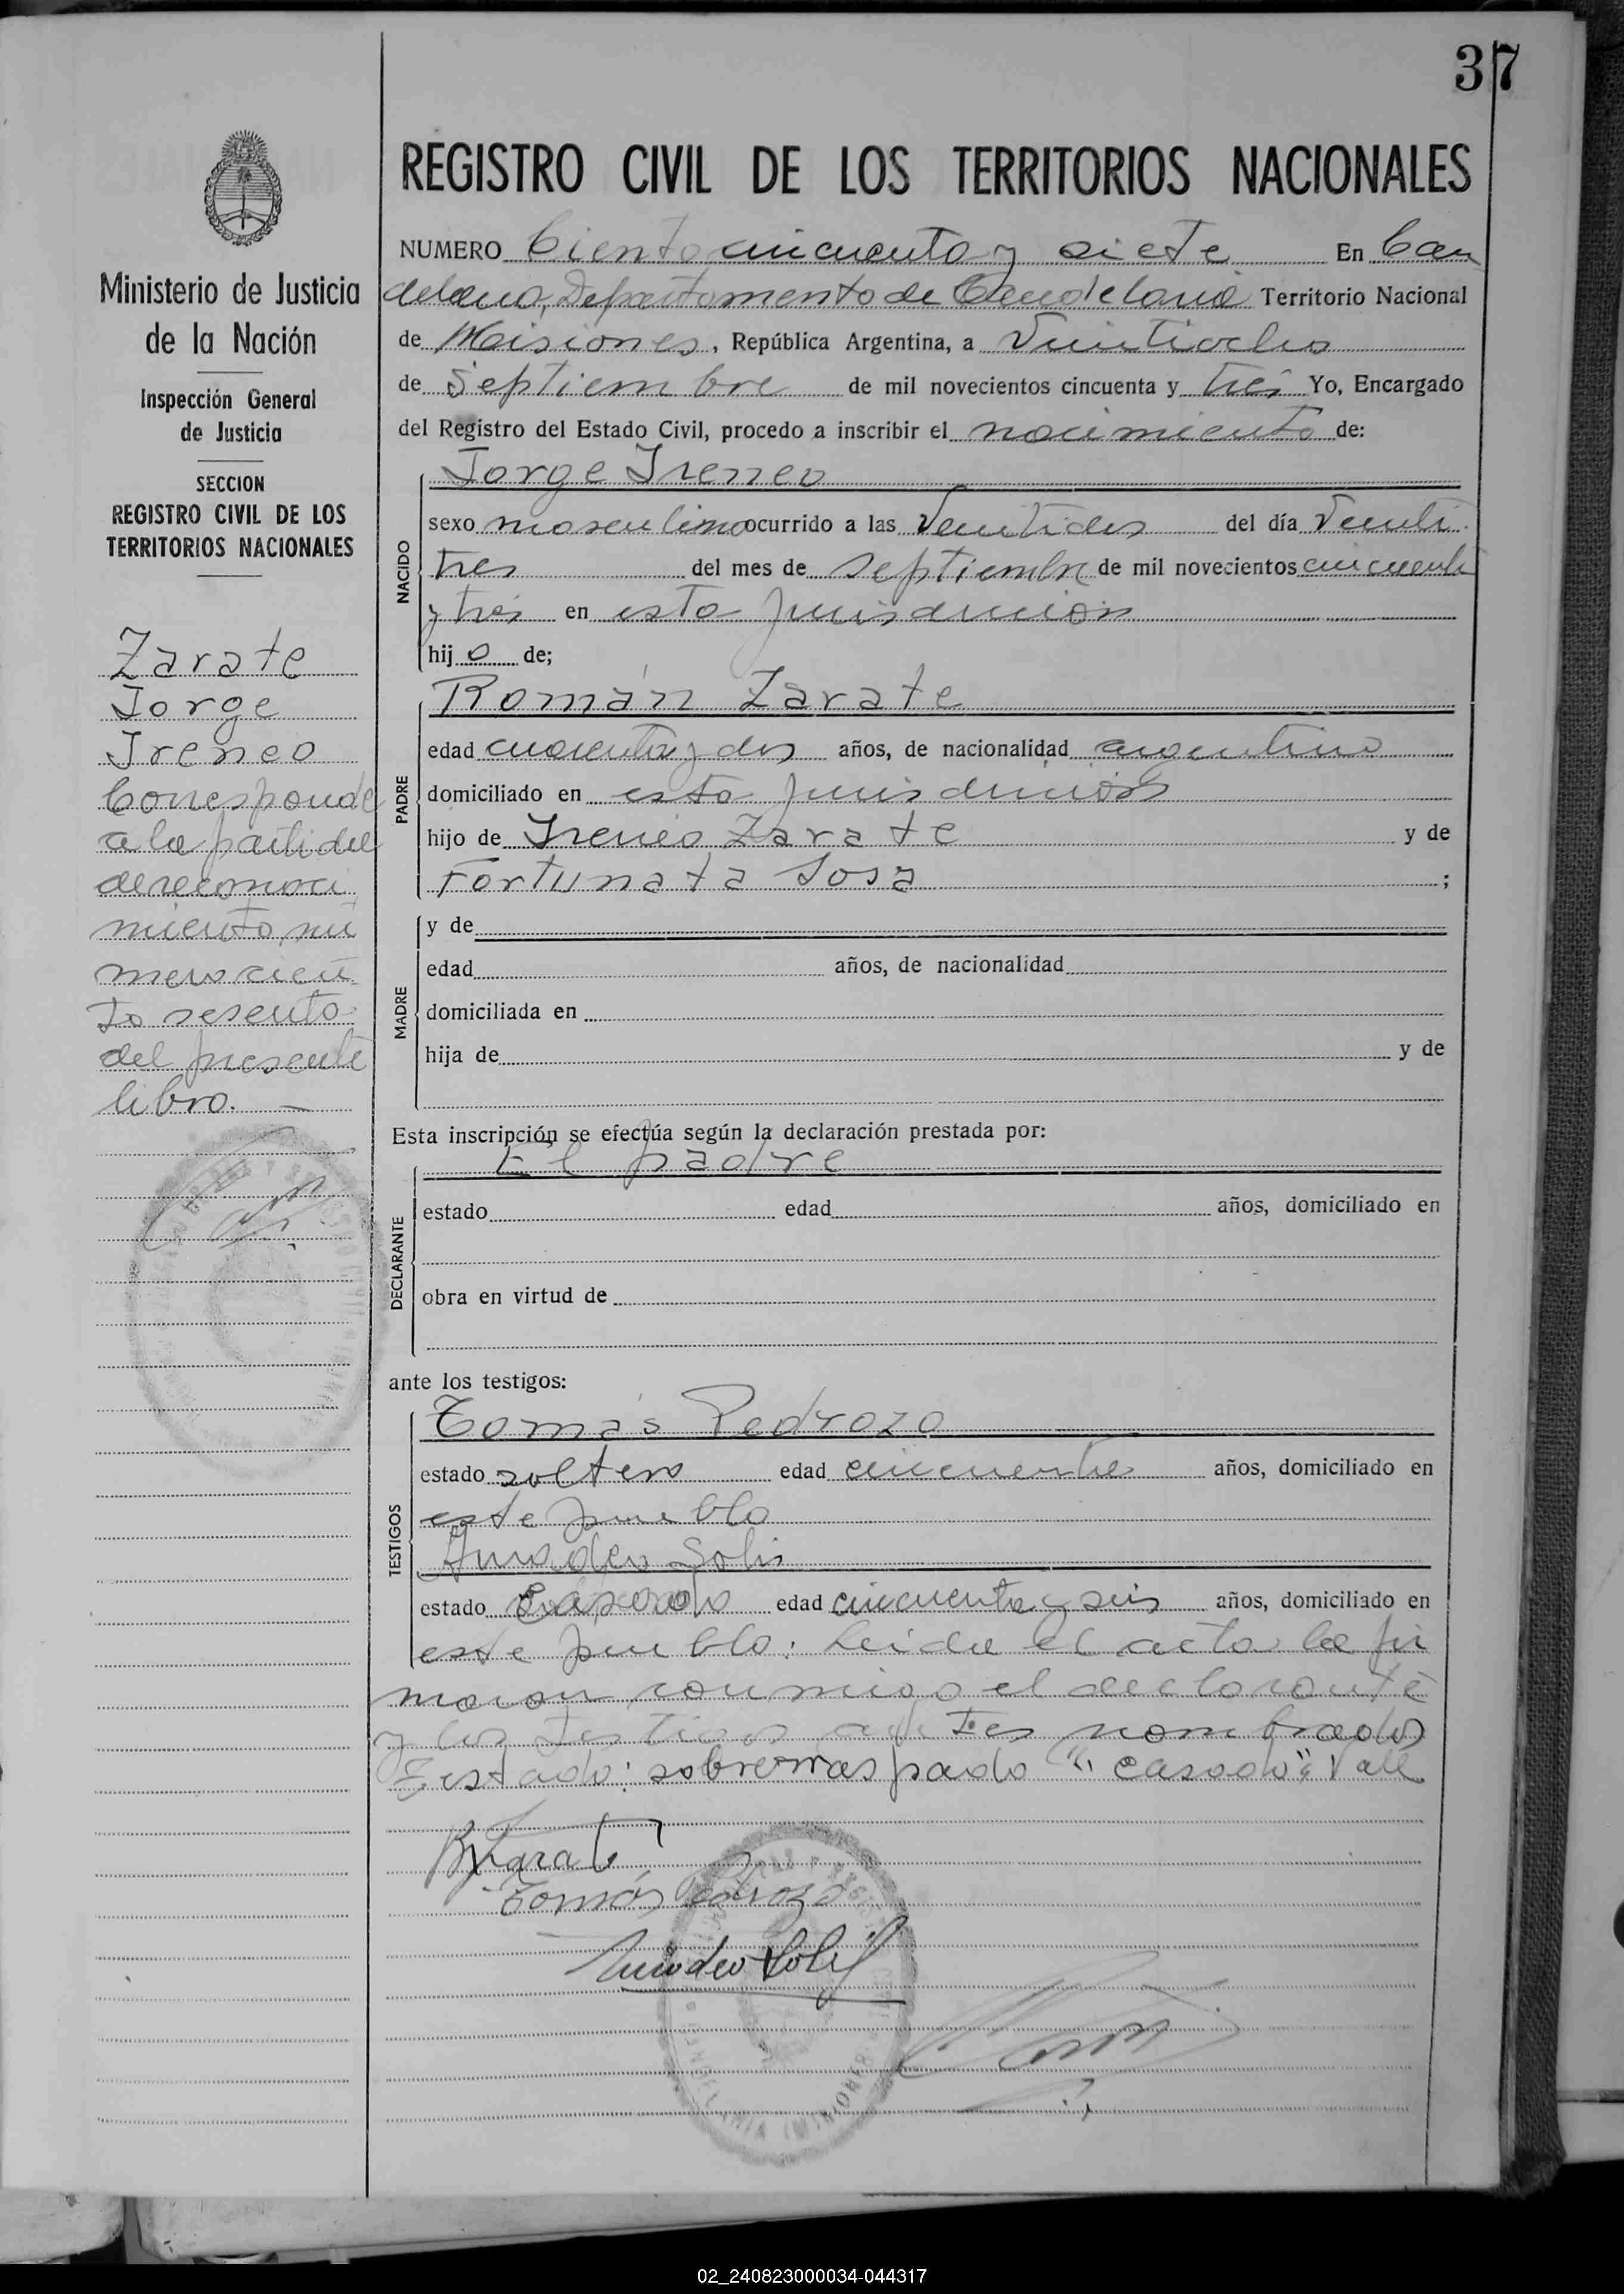 37
REGISTRO CIVIL DE LOS TERRITORIOS NACIONALES
NUMERO Ciento cincuenta y siete En Can
delaria, Departamento de Candelaria Territorio Nacional
de Misiones, República Argentina, a Veintiocho
de Septiembre de mil novecientos cincuenta y tres Yo, Encargado
del Registro del Estado Civil, procedo a inscribir el nacimiento de:
NACIDO
Jorge Ireneo
sexo masculino ocurrido a las Veintidos del día Veinti
tres del mes de septiembre de mil novecientos cincuenta
y tres en esta jurisdiccion
hijo de;
PADRE
Román Zarate
edad cuarenta y dos años, de nacionalidad argentino
domiciliado en esta jurisdiccion
hijo de Ireneo Zarate y de
Fortunata Sosa ;
MADRE
y de
edad años, de nacionalidad
domiciliada en
hija de y de
Esta inscripción se efectúa según la declaración prestada por:
DECLARANTE
El padre
estado edad años, domiciliado en
obra en virtud de
ante los testigos:
TESTIGOS
Tomás Pedrozo
estado soltero edad cincuenta años, domiciliado en
este pueblo
Amadeo Solis
estado Casado edad cincuenta y seis años, domiciliado en
este pueblo: Leida el acta la fir
maron conmigo el declarante
y los testigos antes nombrados
Estado: sobrerraspado "casado": Vale
R Zarate
Tomás Pedrozo
Amadeo Solis
Ministerio de Justicia
de la Nación
Inspección General
de Justicia
SECCION
REGISTRO CIVIL DE LOS
TERRITORIOS NACIONALES
Zarate
Jorge
Ireneo
Corresponde
a la partida
de reconoci
miento nú
mero cien
to sesenta
del presente
libro. —
02_240823000034-044317